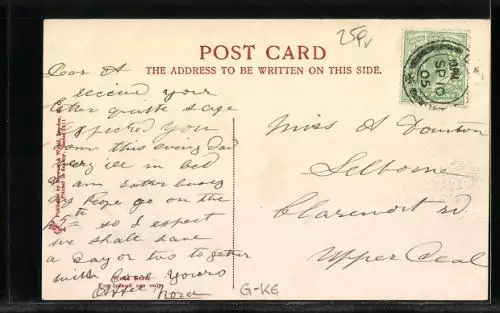 25p
POST CARD
THE ADDRESS TO BE WRITTEN ON THIS SIDE.
Dear A
received your
letter quite safe
expected you
down this evening Dad
very ill in bed
I am rather busy
my people go on the
25th so I expect
we shall have
a day or two together
with love yours
Miss A Dounton
Selborne
Claremont rd
Upper Deal
10 PM
SP 10
05
For Inland use only.
G-K6